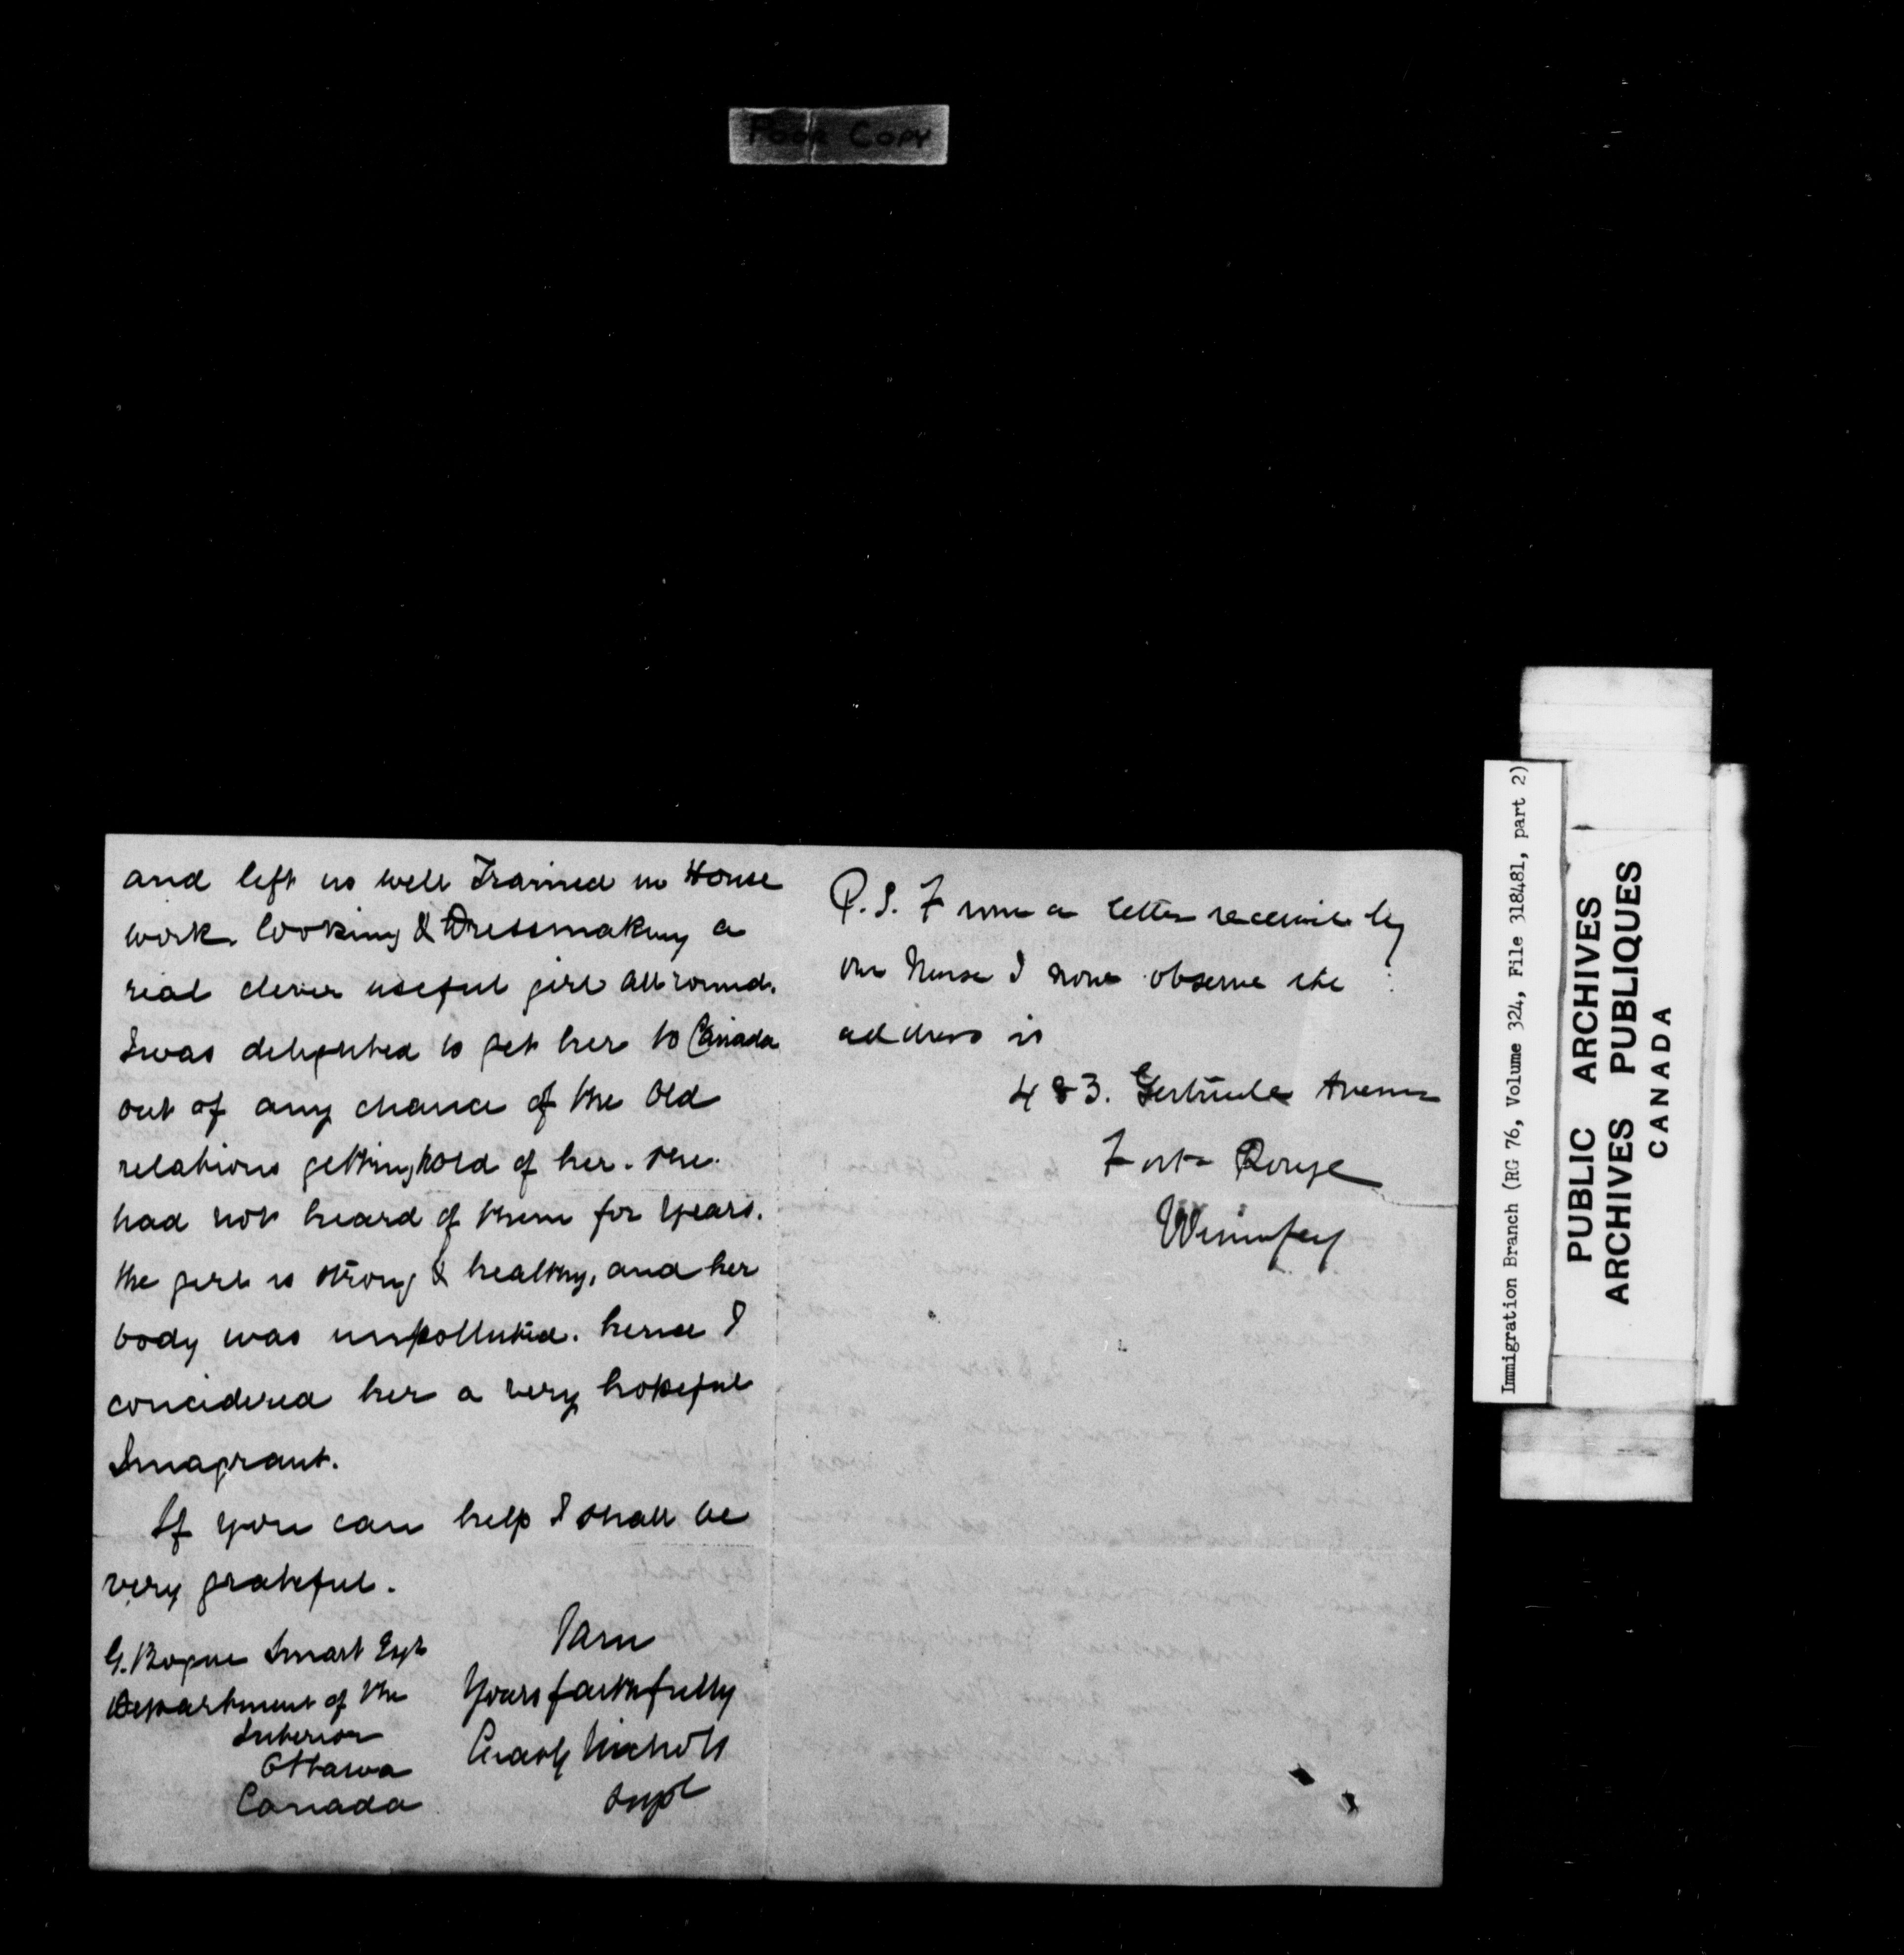 Poor Copy
and left us well Trained in House
work. Cooking & Dressmaking a
real clever useful girl all round.
I was delighted to get her to Canada
out of any chance of the old
relations getting hold of her. She
had not heard of them for years.
the girl is strong & healthy, and her
body was unpolluted. hence I
concidered her a very hopeful
Imagrant.
If you can help I shall be
very grateful.
I am
Yours faithfully
Nichols
Supt
G. Bogue Smart Esqr
Department of the
Interior
Ottawa
Canada
P.S. From a letter received by
our Nurse I now observe the
address is
483. Gertrude Avenue
Fort Rouge
Winnipeg
Immigration Branch (RG 76, Volume 324, File 318481, part 2)
PUBLIC ARCHIVES
ARCHIVES PUBLIQUES
CANADA